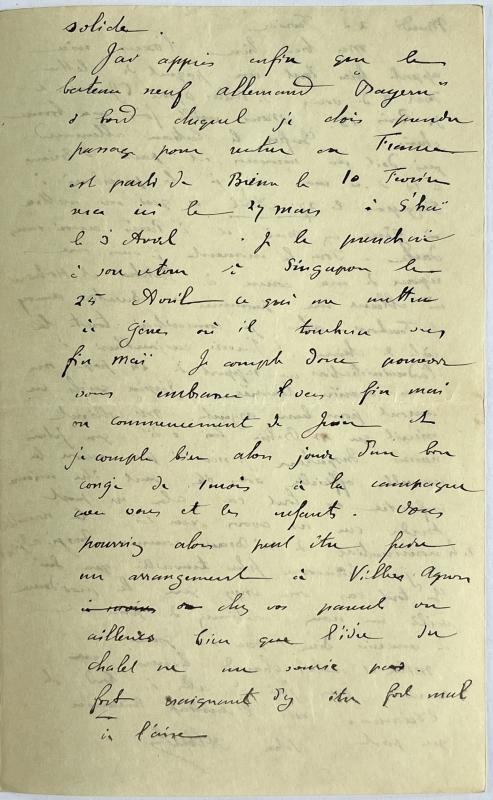 solide.
J'ai appris enfin que le
bateau neuf allemand "Bayern"
à bord duquel je dois prendre
passage pour rentrer en France
est parti de Brême le 10 Février
sera ici le 27 mars à S'haï
le 3 Avril. Je le prendrai
à son retour à Singapour le
25 Avril ce qui me mettra
à Gênes où il touchera vers
fin maï. Je compte donc pouvoir
vous embrasser vers fin mai
ou commencement de Juin et
je compte bien alors jouir d'un bon
congé de 1 mois à la campagne
avec vous et les enfants. Vous
pourriez alors peut être faire
un arrangement à Villers Agron
à moins ou chez vos parents ou
ailleurs bien que l'idée du
chalet ne me sourie pas.
fort craignant d'y être fort mal
à l'aise